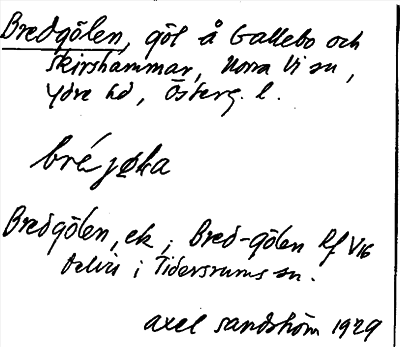 Bredgölen, göl å Gallebo och
Skirshammar, Norra Vi sn,
Ydre hd, Österg. l.
Bredgölen, ek ; Bred-gölen Rf V16
delvis i Tidersrums sn.
Axel Sandström 1929